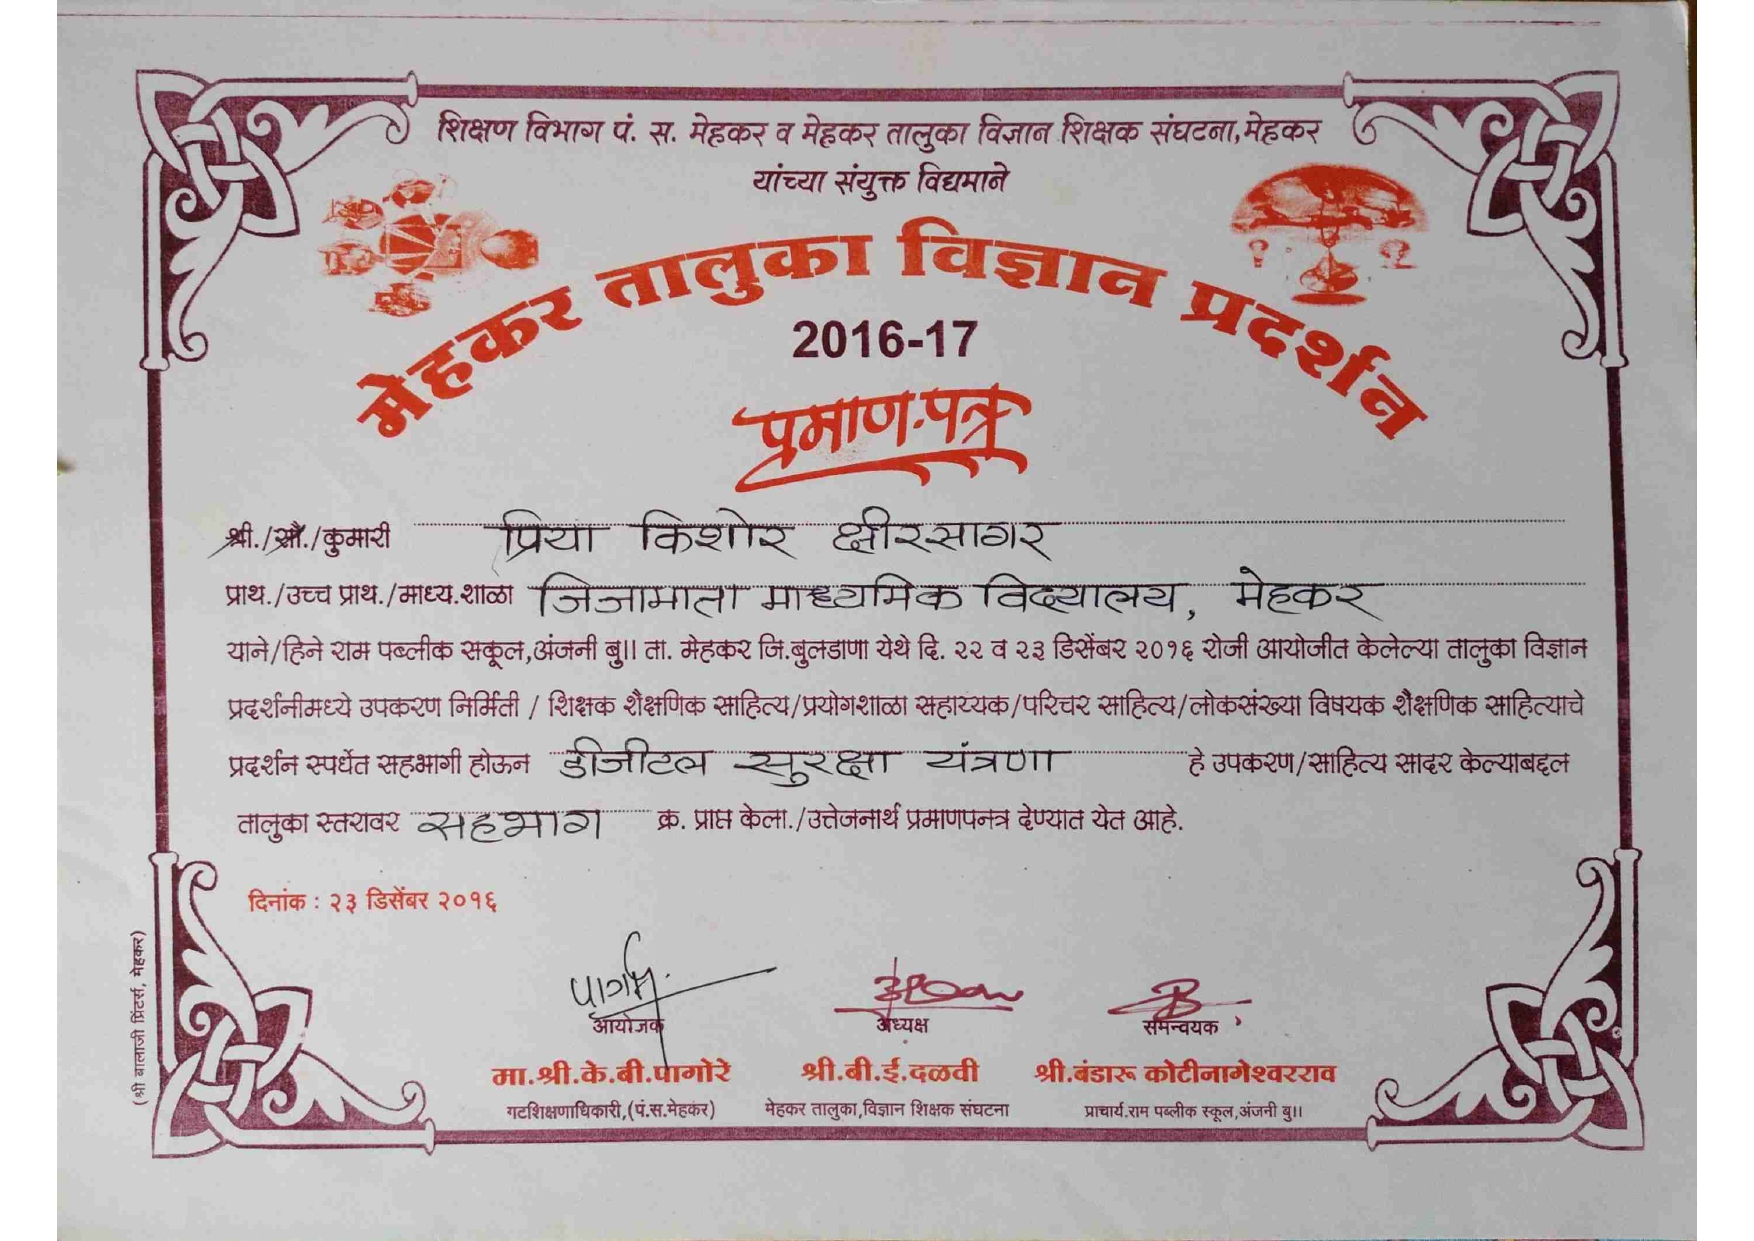 शिक्षण विभाग पं. स. मेहकर व मेहकर तालुका विज्ञान शिक्षक संघटना,मेहकर
यांच्या संयुक्त विद्यमाने
मेहकर तालुका विज्ञान प्रदर्शन
2016-17
प्रमाण-पत्र
श्री./सौ./कुमारी प्रिया किशोर क्षीरसागर
प्राथ./उच्च प्राथ./माध्य.शाळा जिजामाता माध्यमिक विद्यालय, मेहकर
याने/हिने राम पब्लीक सकूल,अंजनी बु॥ ता. मेहकर जि.बुलडाणा येथे दि. २२ व २३ डिसेंबर २०१६ रोजी आयोजीत केलेल्या तालुका विज्ञान
प्रदर्शनीमध्ये उपकरण निर्मिती / शिक्षक शैक्षणिक साहित्य/प्रयोगशाळा सहाय्यक/परिचर साहित्य/लोकसंख्या विषयक शैक्षणिक साहित्याचे
प्रदर्शन स्पर्धेत सहभागी होऊन डीजीटल सुरक्षा यंत्रणा हे उपकरण/साहित्य सादर केल्याबद्दल
तालुका स्तरावर सहभाग क्र. प्राप्त केला./उत्तेजनार्थ प्रमाणपनत्र देण्यात येत आहे.
दिनांक : २३ डिसेंबर २०१६
आयोजक अध्यक्ष समन्वयक
मा.श्री.के.बी.पागोरे श्री.बी.ई.दळवी श्री.बंडारू कोटीनागेश्वरराव
गटशिक्षणाधिकारी,(पं.स.मेहकर) मेहकर तालुका,विज्ञान शिक्षक संघटना प्राचार्य.राम पब्लीक स्कूल,अंजनी बु॥
(श्री बालाजी प्रिंटर्स, मेहकर)